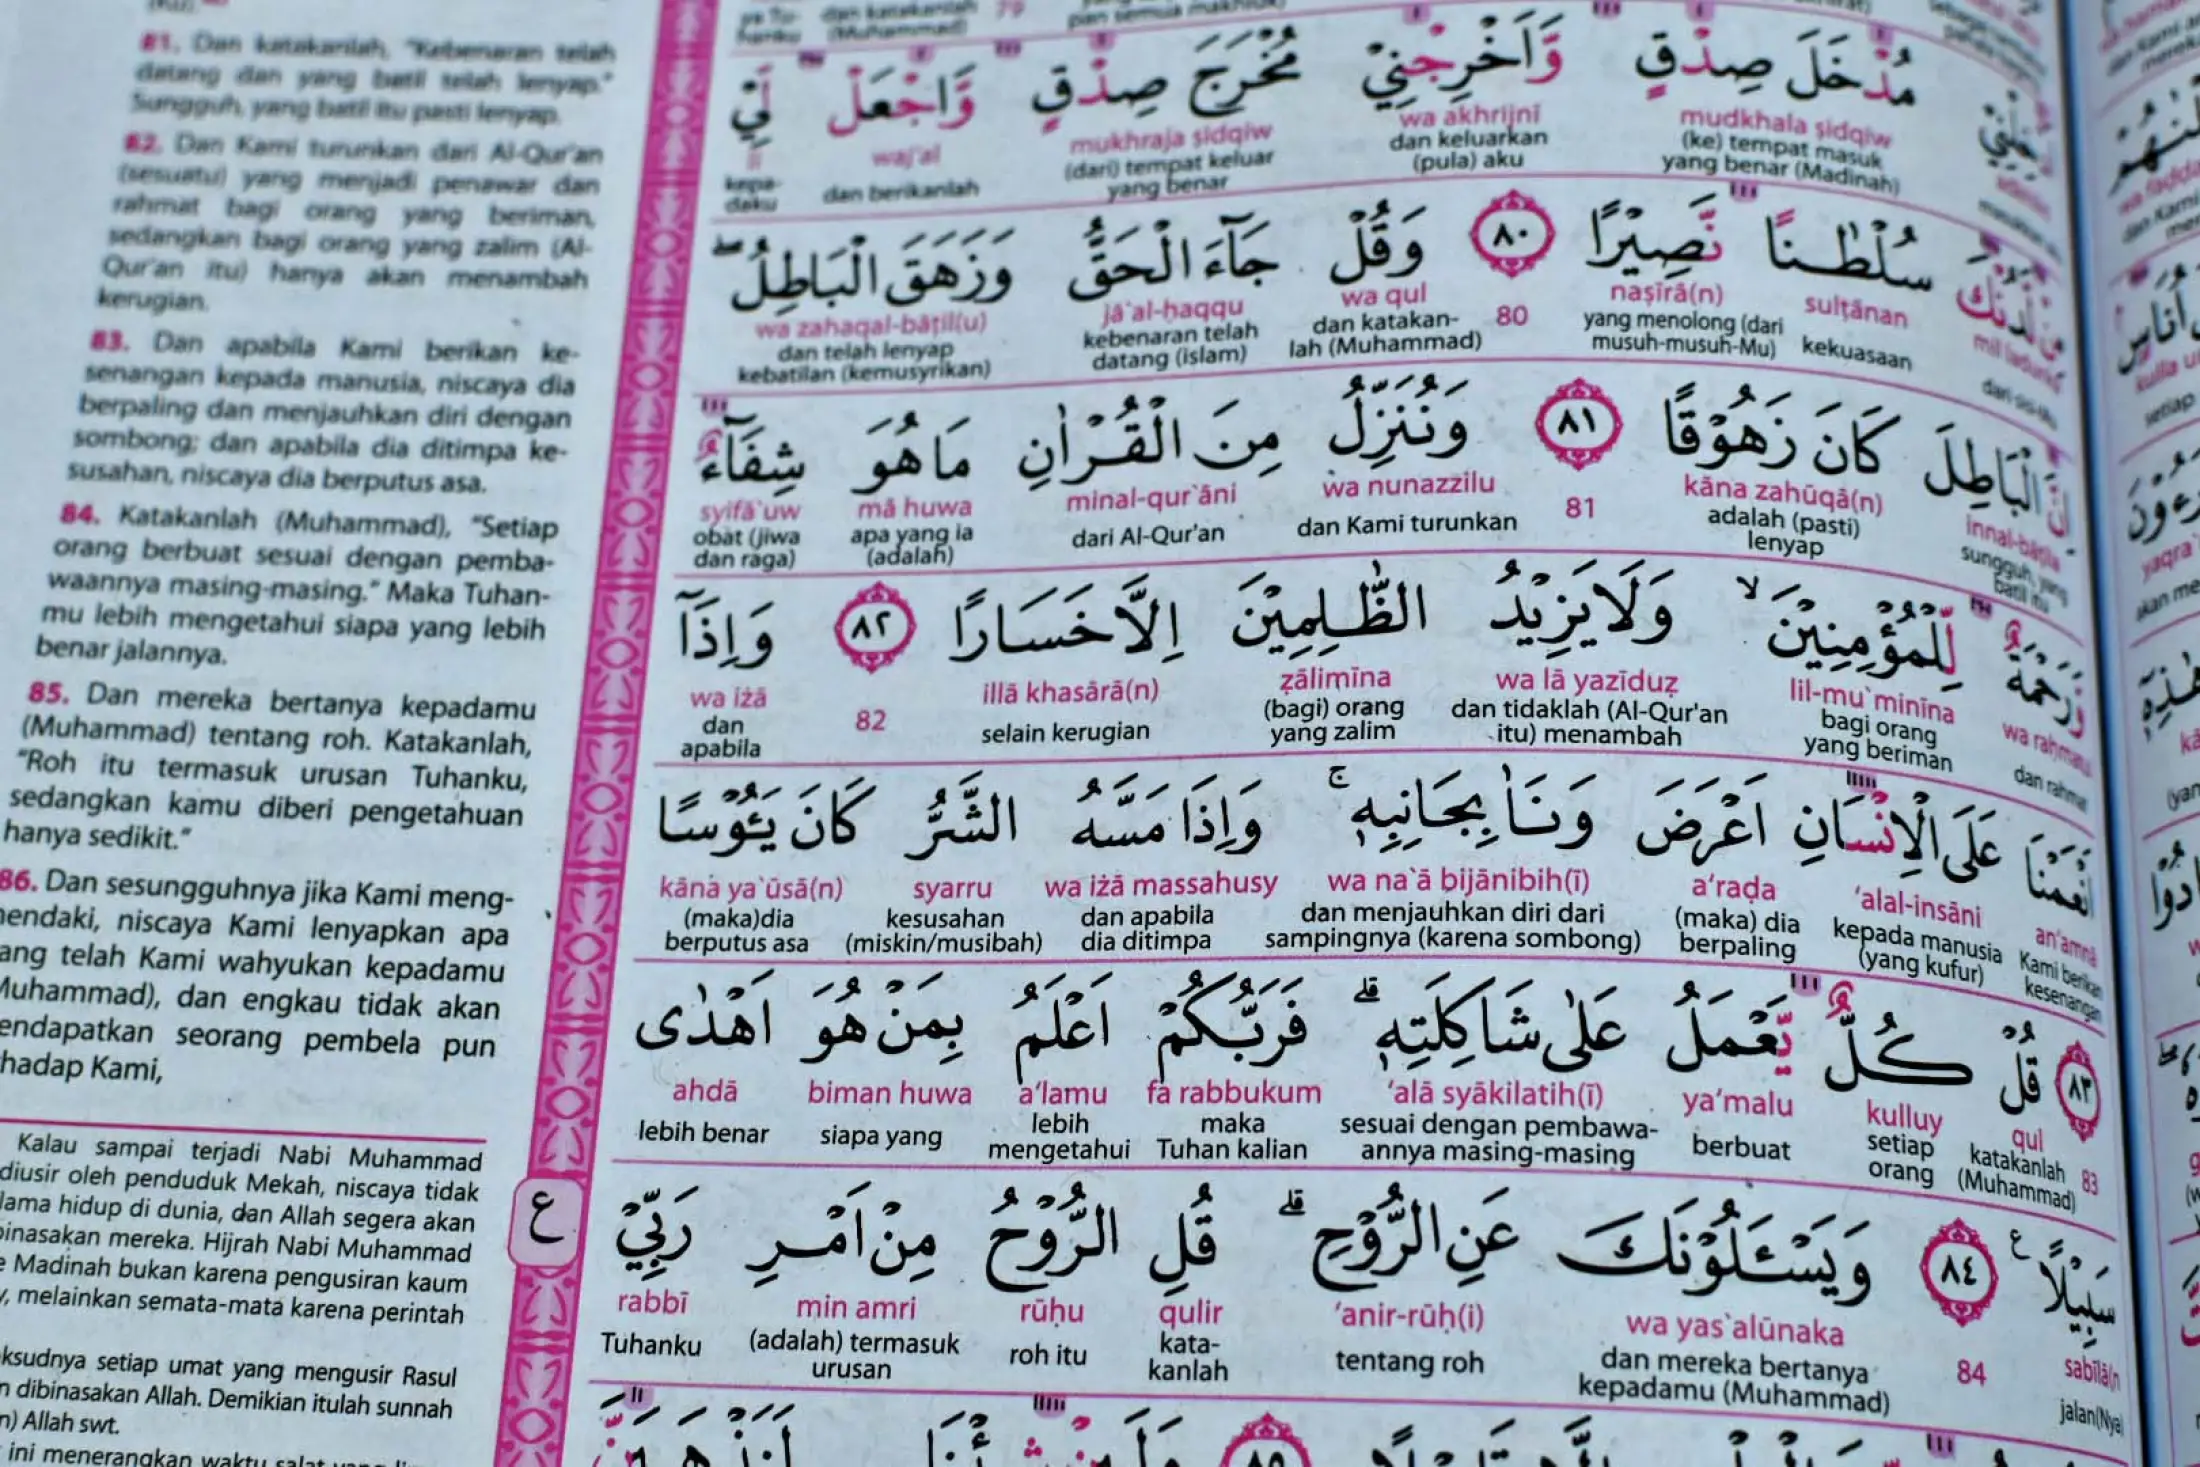 81. Dan katakanlah, "Kebenaran telah
datang dan yang batil telah lenyap."
Sungguh, yang batil itu pasti lenyap.
82. Dan Kami turunkan dari Al-Qur'an
(sesuatu) yang menjadi penawar dan
rahmat bagi orang yang beriman,
sedangkan bagi orang yang zalim (Al-
Qur'an itu) hanya akan menambah
kerugian.
83. Dan apabila Kami berikan ke-
senangan kepada manusia, niscaya dia
berpaling dan menjauhkan diri dengan
sombong; dan apabila dia ditimpa ke-
susahan, niscaya dia berputus asa.
84. Katakanlah (Muhammad), "Setiap
orang berbuat sesuai dengan pemba-
waannya masing-masing." Maka Tuhan-
mu lebih mengetahui siapa yang lebih
benar jalannya.
85. Dan mereka bertanya kepadamu
(Muhammad) tentang roh. Katakanlah,
"Roh itu termasuk urusan Tuhanku,
sedangkan kamu diberi pengetahuan
hanya sedikit."
86. Dan sesungguhnya jika Kami meng-
hendaki, niscaya Kami lenyapkan apa
ang telah Kami wahyukan kepadamu
Muhammad), dan engkau tidak akan
endapatkan seorang pembela pun
hadap Kami,
Kalau sampai terjadi Nabi Muhammad
diusir oleh penduduk Mekah, niscaya tidak
lama hidup di dunia, dan Allah segera akan
binasakan mereka. Hijrah Nabi Muhammad
e Madinah bukan karena pengusiran kaum
y, melainkan semata-mata karena perintah
ksudnya setiap umat yang mengusir Rasul
n dibinasakan Allah. Demikian itulah sunnah
n) Allah swt.
ini menerangkan waktu salat yang
مُدْخَلَ صِدْقٍ وَّاَخْرِجْنِيْ مُخْرَجَ صِدْقٍ وَّاجْعَلْ لِّيْ
mudkhala ṣidqiw wa akhrijnī mukhraja ṣidqiw waj'al lī
(ke) tempat masuk dan keluarkan (dari) tempat keluar dan berikanlah kepa-
yang benar (Madinah) (pula) aku yang benar daku
مِنْ لَّدُنْكَ سُلْطٰنًا نَّصِيْرًا ۸۰ وَقُلْ جَاۤءَ الْحَقُّ وَزَهَقَ الْبَاطِلُ ۖ
mil ladunka sulṭānan naṣīrā(n) 80 wa qul jā`al-ḥaqqu wa zahaqal-bāṭil(u)
kekuasaan yang menolong (dari dan katakan- kebenaran telah dan telah lenyap
musuh-musuh-Mu) lah (Muhammad) datang (islam) kebatilan (kemusyrikan)
اِنَّ الْبَاطِلَ كَانَ زَهُوْقًا ۸۱ وَنُنَزِّلُ مِنَ الْقُرْاٰنِ مَا هُوَ شِفَاۤءٌ
innal-bāṭila kāna zahūqā(n) 81 wa nunazzilu minal-qur`āni mā huwa syifā`uw
sungguh, yang adalah (pasti) dan Kami turunkan dari Al-Qur'an apa yang ia obat (jiwa
batil itu lenyap (adalah) dan raga)
وَّرَحْمَةٌ لِّلْمُؤْمِنِيْنَ ۙ وَلَا يَزِيْدُ الظّٰلِمِيْنَ اِلَّا خَسَارًا ۸۲ وَاِذَآ
wa rahmatu lil-mu`minīna wa lā yazīduẓ ẓālimīna illā khasārā(n) 82 wa iżā
dan rahmat bagi orang dan tidaklah (Al-Qur'an (bagi) orang selain kerugian dan
yang beriman itu) menambah yang zalim apabila
اَنْعَمْنَا عَلَى الْاِنْسَانِ اَعْرَضَ وَنَاٰ بِجَانِبِهٖ ۚ وَاِذَا مَسَّهُ الشَّرُّ كَانَ يَـُٔوْسًا
an'amnā 'alal-insāni a'raḍa wa na`ā bijānibih(ī) wa iżā massahusy syarru kāna ya`ūsā(n)
Kami berikan kepada manusia (maka) dia dan menjauhkan diri dari dan apabila kesusahan (maka)dia
kesenangan (yang kufur) berpaling sampingnya (karena sombong) dia ditimpa (miskin/musibah) berputus asa
۸۳ قُلْ كُلٌّ يَّعْمَلُ عَلٰى شَاكِلَتِهٖ ۗ فَرَبُّكُمْ اَعْلَمُ بِمَنْ هُوَ اَهْدٰى
83 qul kulluy ya'malu 'alā syākilatih(ī) fa rabbukum a'lamu biman huwa ahdā
katakanlah setiap berbuat sesuai dengan pembawa- maka lebih siapa yang lebih benar
(Muhammad) orang annya masing-masing Tuhan kalian mengetahui
سَبِيْلًا ع ۸٤ وَيَسْـَٔلُوْنَكَ عَنِ الرُّوْحِ ۗ قُلِ الرُّوْحُ مِنْ اَمْرِ رَبِّيْ
ع
sabīlā(n 84 wa yas`alūnaka 'anir-rūḥ(i) qulir rūḥu min amri rabbī
jalan(Nya) dan mereka bertanya tentang roh kata- roh itu (adalah) termasuk Tuhanku
kepadamu (Muhammad) kanlah urusan